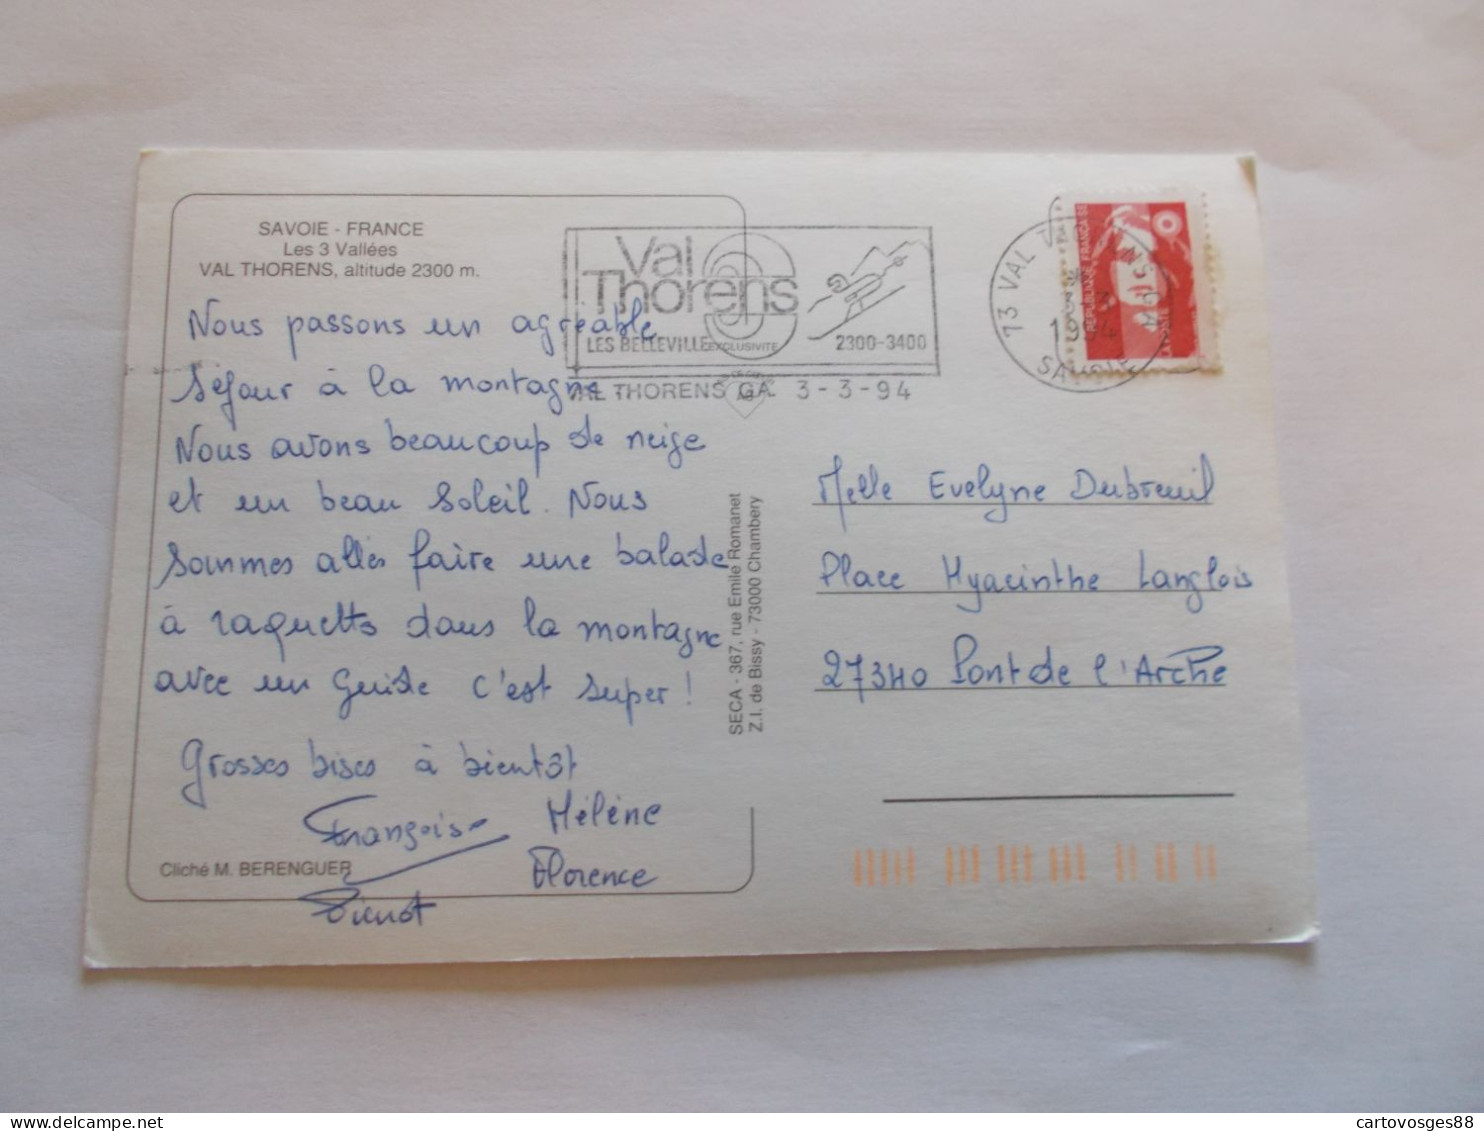 SAVOIE - FRANCE
Les 3 Vallées
VAL THORENS, altitude 2300 m.
Nous passons un agréable
séjour à la montagne.
Nous avons beaucoup de neige
et un beau soleil. Nous
sommes allés faire une balade
à raquettes dans la montagne
avec un guide c'est super !
Grosses bises à bientôt
Hélène
Florence
Cliché M. BERENGUER
SECA - 367, rue Emile Romanet
Z.I. de Bissy - 73000 Chambery
Val
Thorens
LES BELLEVILLE EXCLUSIVITE
2300-3400
VAL THORENS GA. 3-3-94
73 VAL THORENS
3-3
1994
SAVOIE
REPUBLIQUE FRANÇAISE
Melle Evelyne Dubreuil
Place Hyacinthe Langlois
27340 Pont de l'Arche
cartovosges88